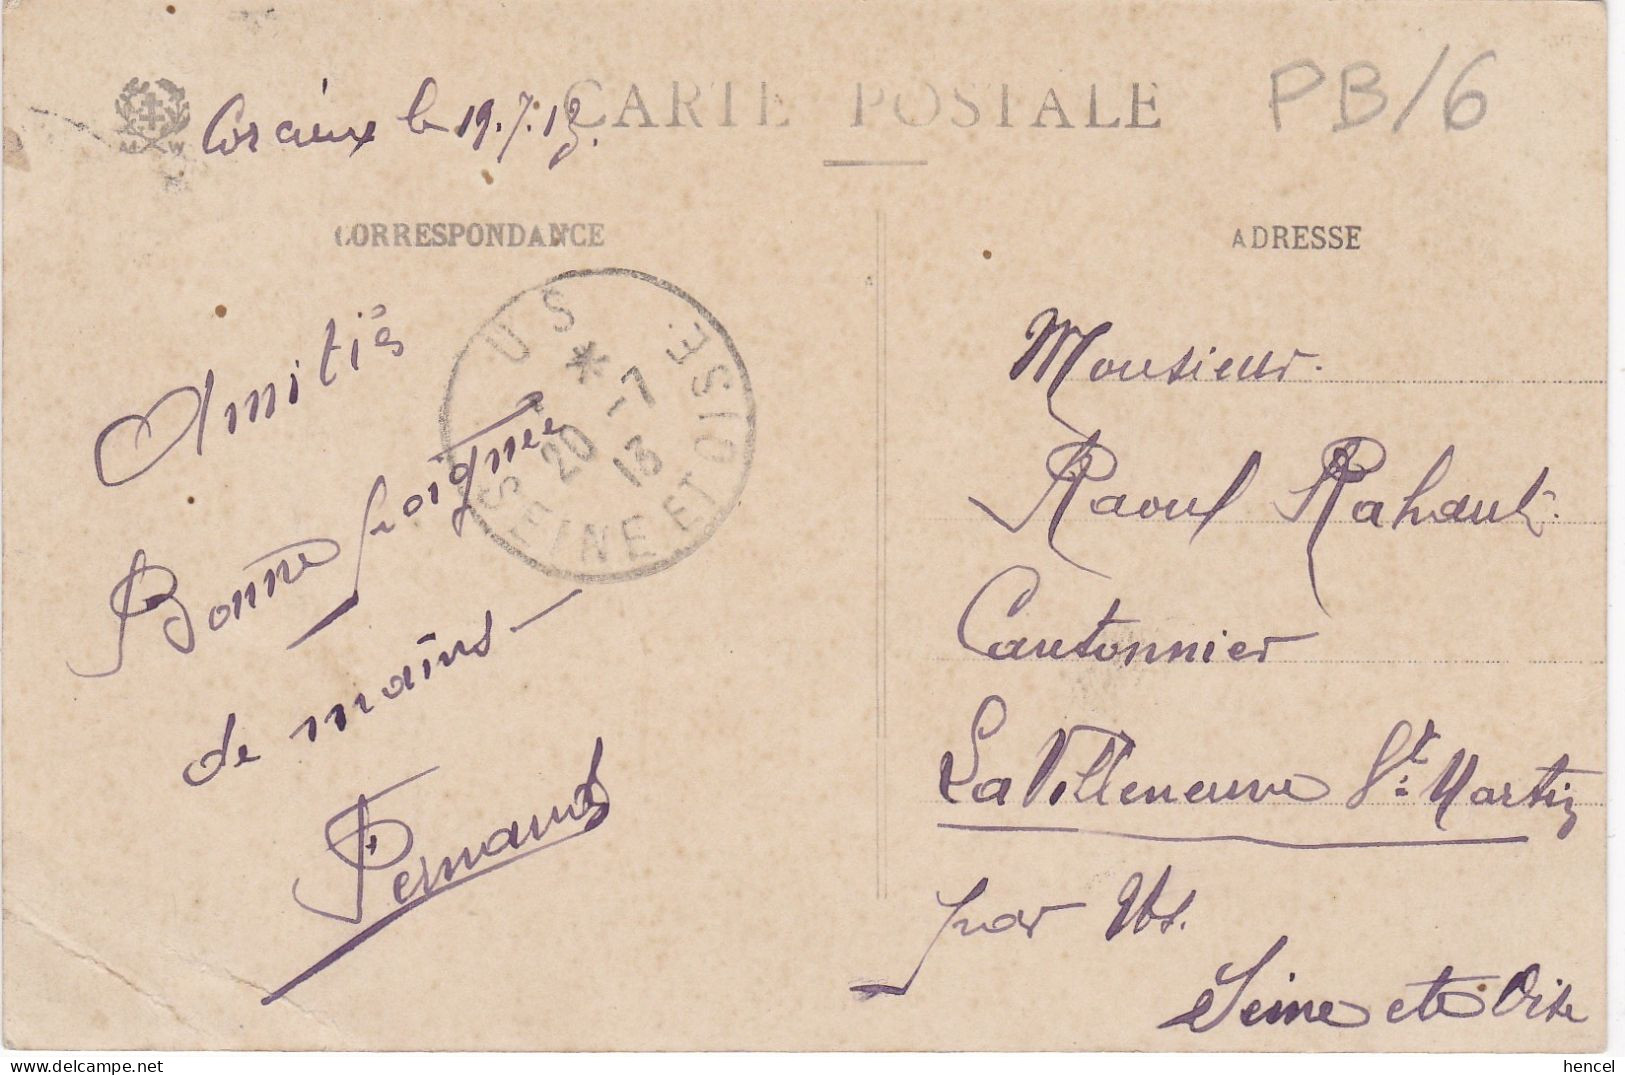 CARTE POSTALE
PB/6
A W
Corcieux le 19.7.13.
CORRESPONDANCE
ADRESSE
US *
20 -7
13
SEINE ET OISE
Amitiés
Bonne poignée
de mains -
Fernand
Monsieur.
Raoul Rahault.
Cantonnier
La Villeneuve St. Martin
par Us.
Seine et Oise
hencel